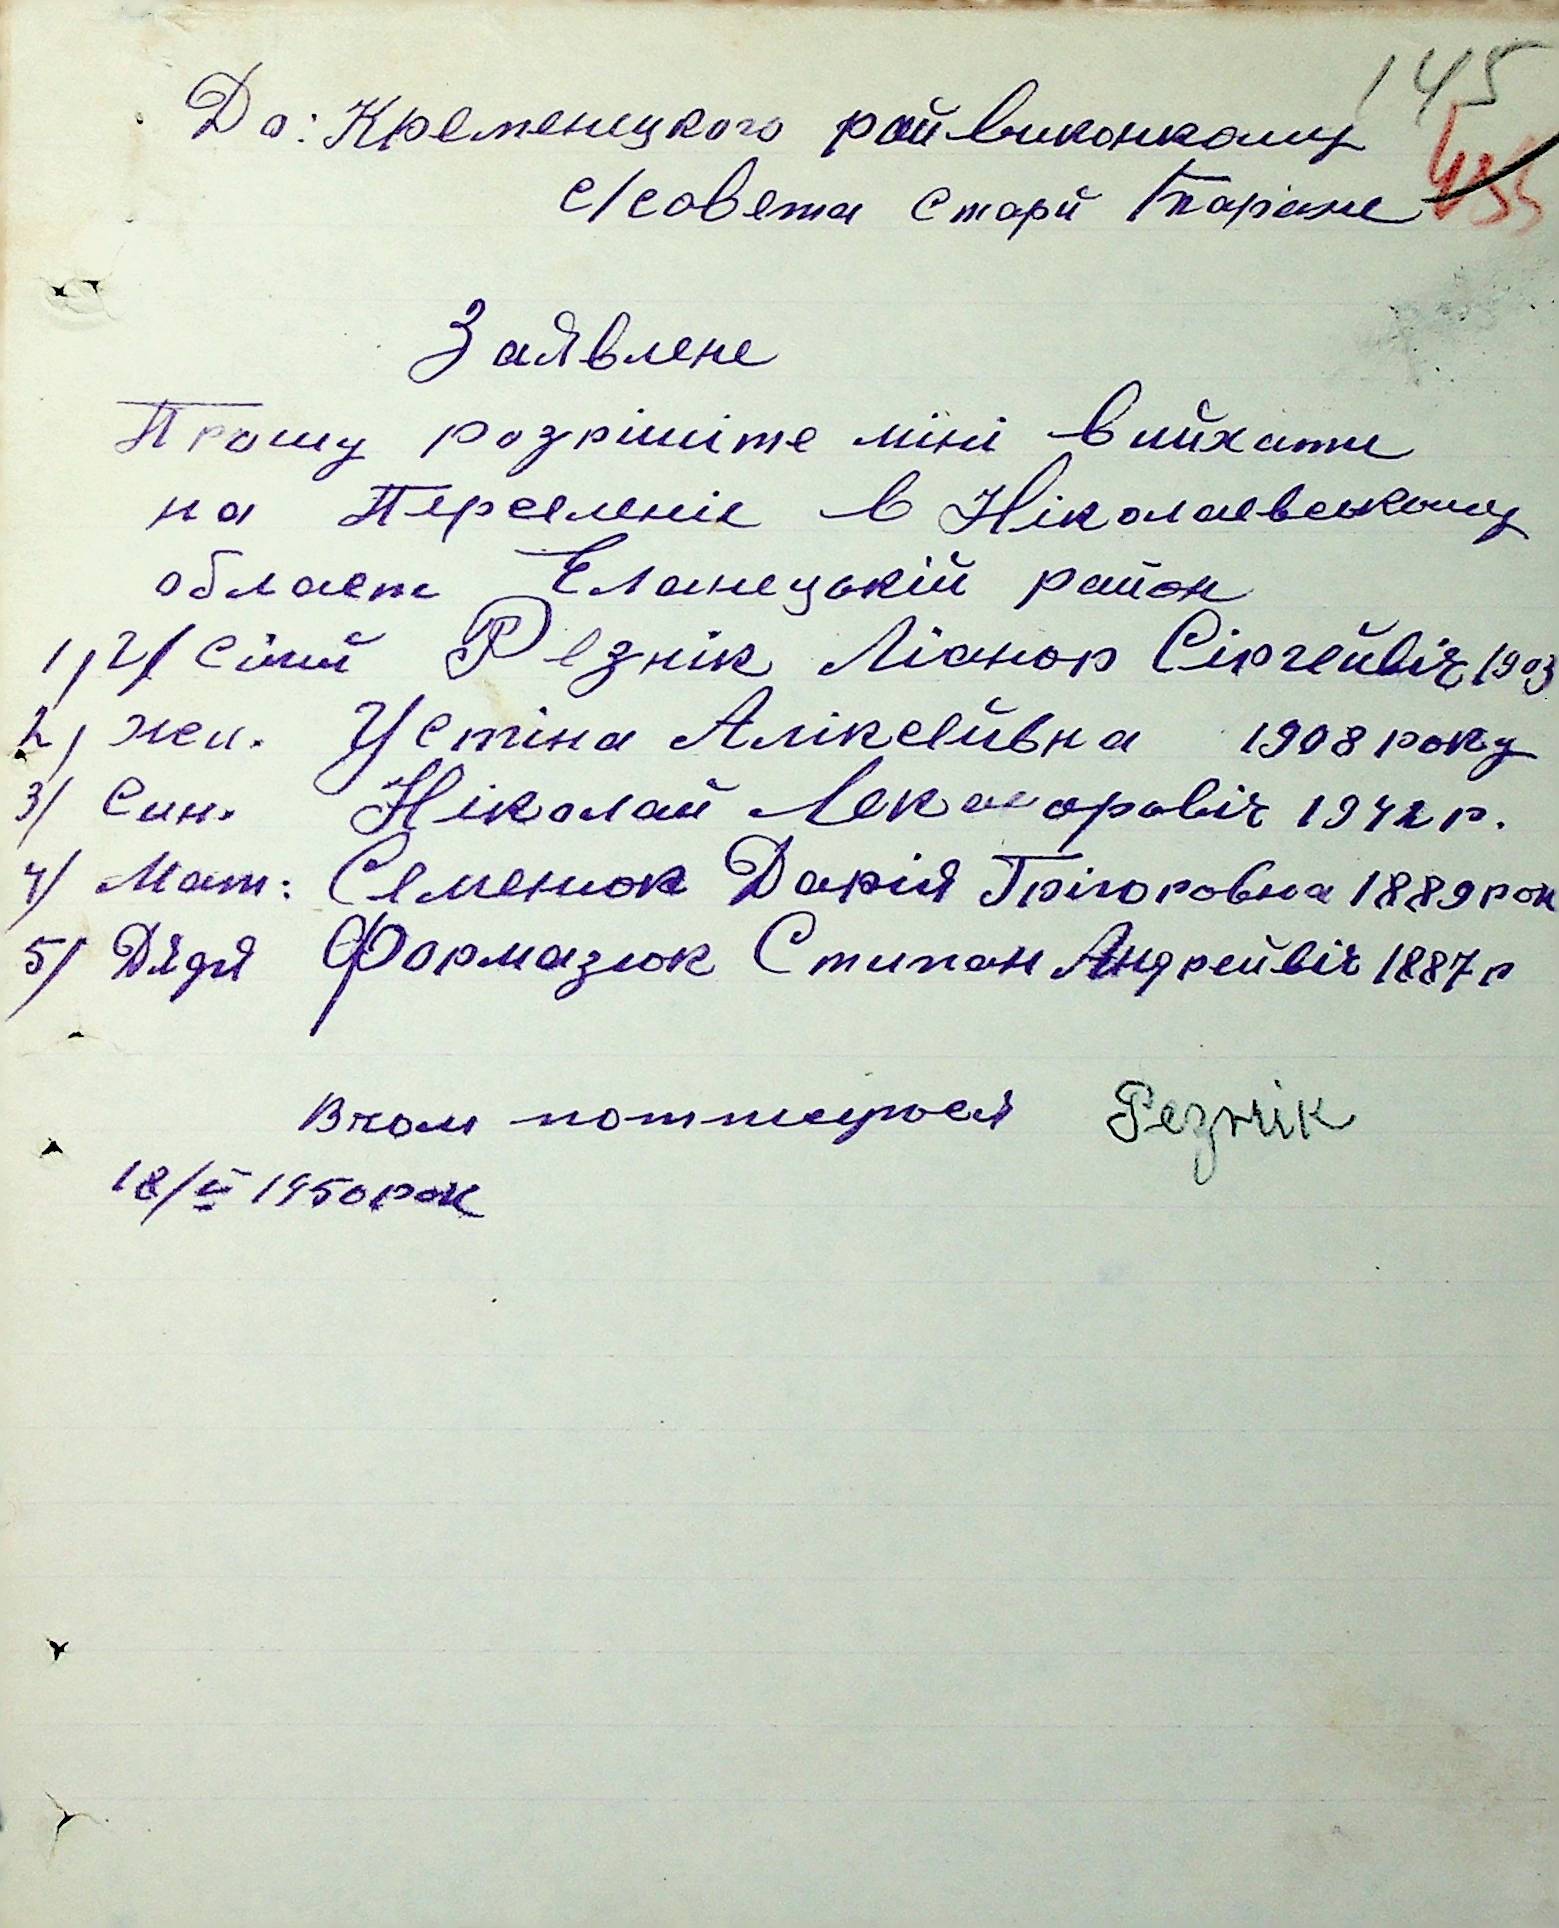 145
До: Кременецкого райвиконкому
с/совета Старй Тараже
Заявлене
Прошу розрішіте міні вийхати
на Перселеніє в Ніколаевському
област Еланецькій район
1, 2/ Сімй Резнік Ліанор Сіргейвіч 1903
2, жен. Устіна Аліксейвна 1908 року
3/ Син. Ніколай 1942 р.
4/ Мат: Семенюк Дарія Грігоровна 1889 рок
5/ Дядя Фармазюк Стипан Андрейвіч 1887 р
Вчом Резнік
18/ 1950 рок